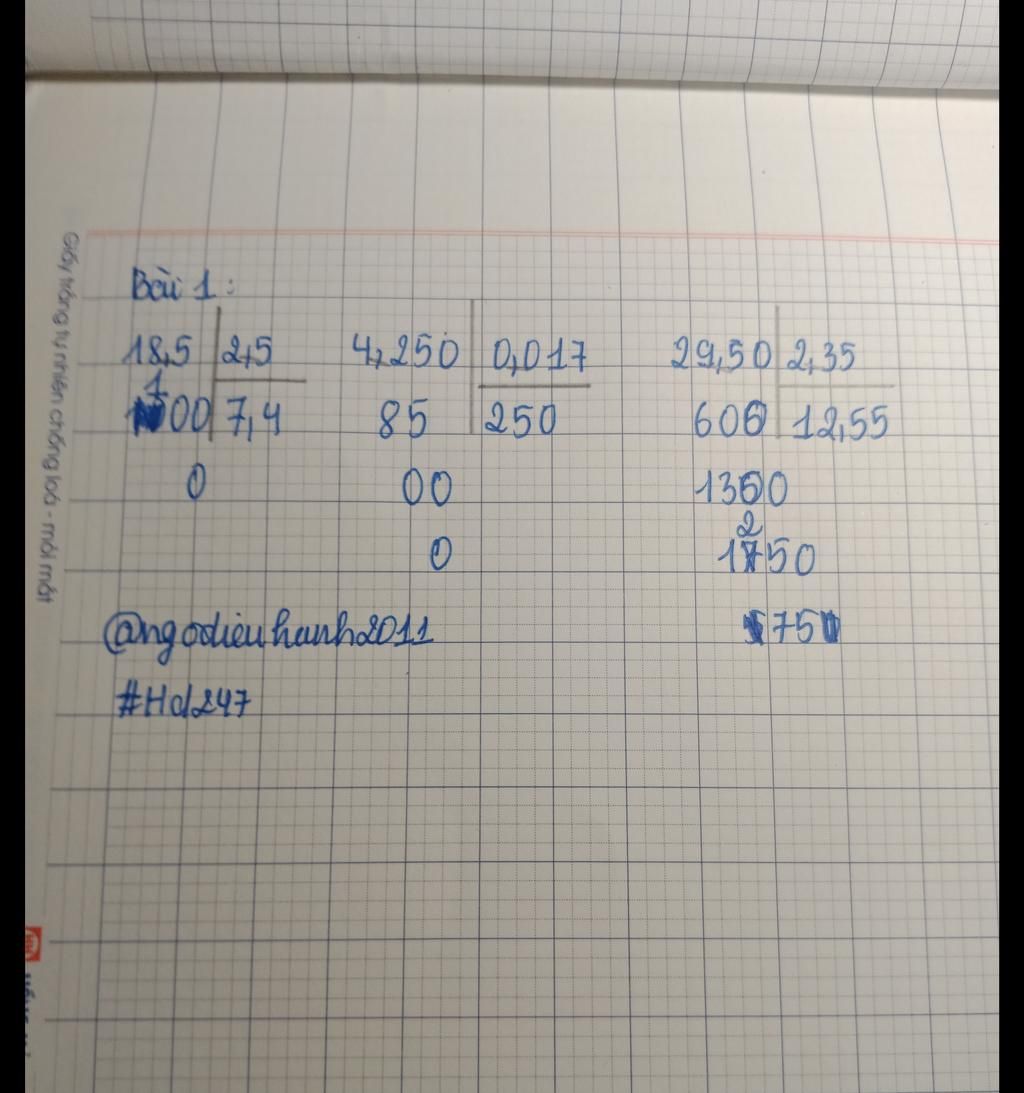 Bài 1:
18,5 2,5 4,250 0,017 29,50 2,35
100 7,4 85 250 600 12,55
0 00 1300
0 1250
@ngodieuhanh2011 75
#Hd247
Giấy trắng tự nhiên chống loá - mỏi mắt